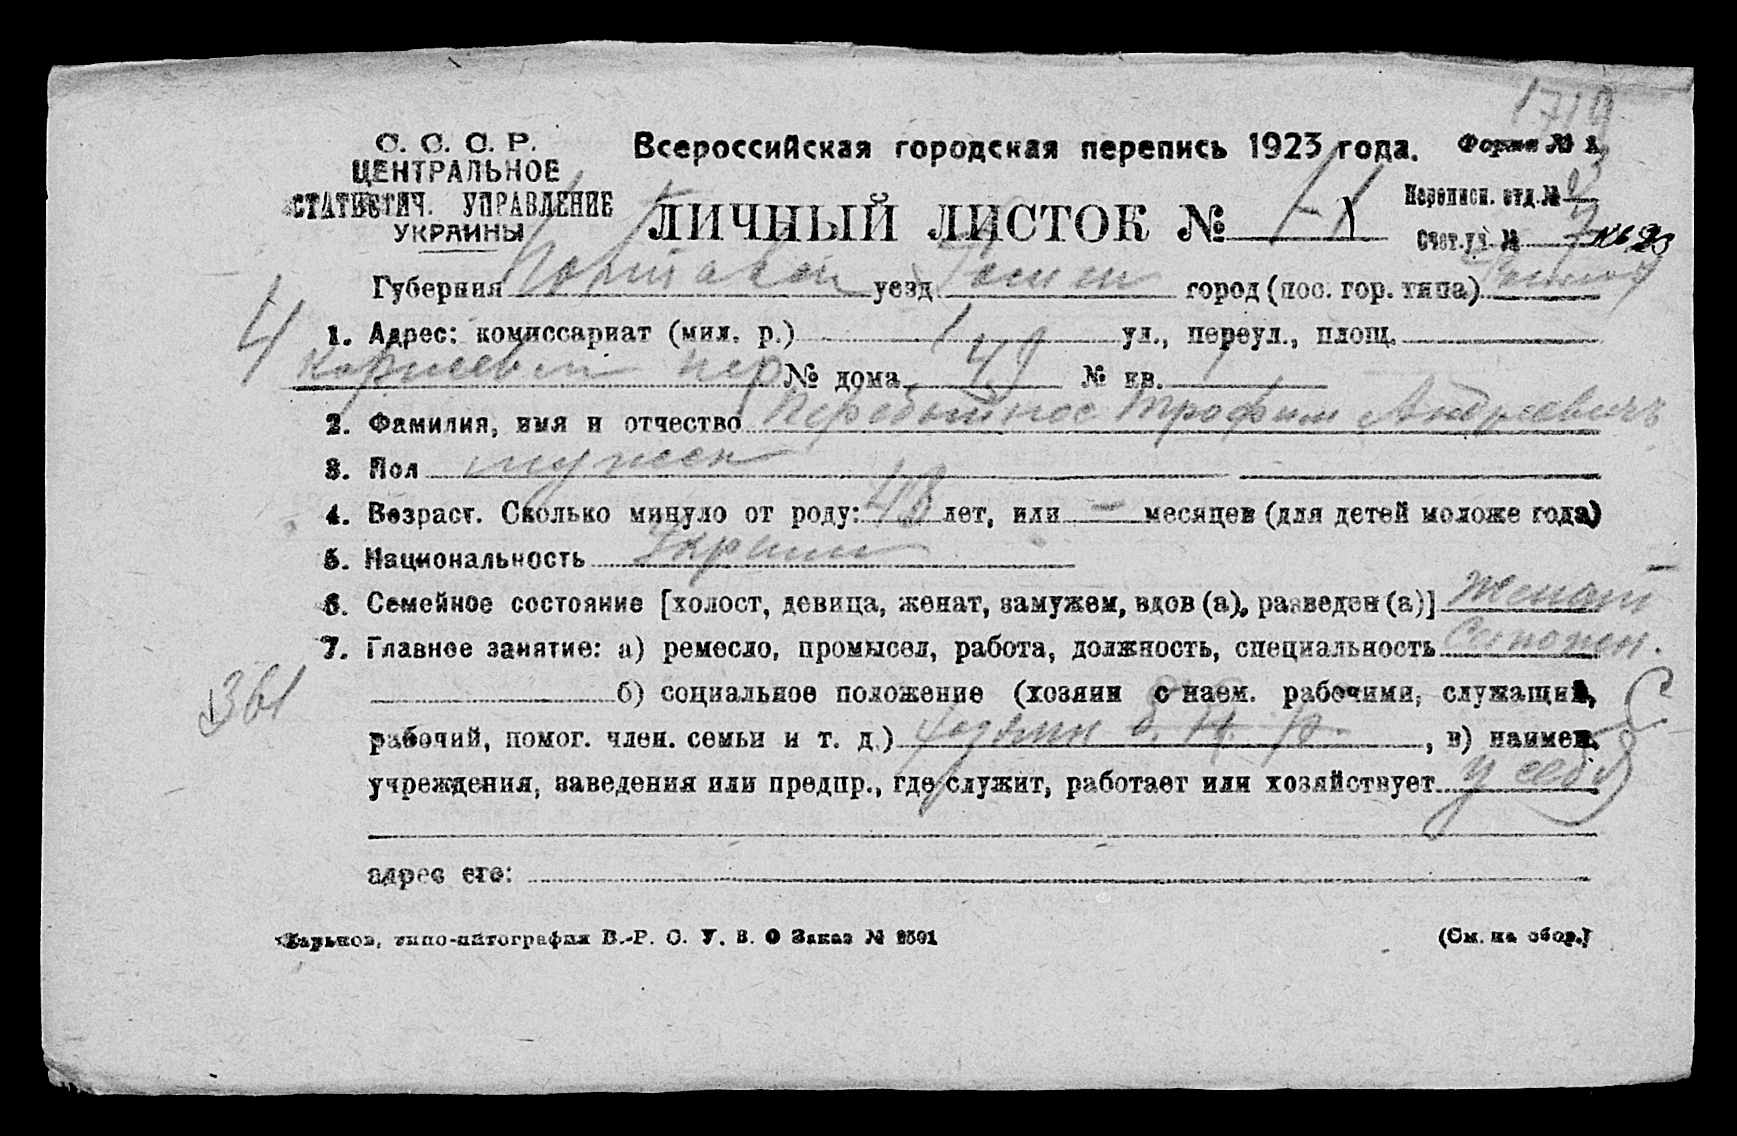 1719
С. С. С. Р. Всероссийская городская перепись 1923 года. Форма № 1.
ЦЕНТРАЛЬНОЕ
СТАТИСТИЧ. УПРАВЛЕНИЕ ЛИЧНЫЙ ЛИСТОК № Переписн. отд. № 3
УКРАИНЫ Счет. уч. № 7
Губерния Полтавск уезд Ромен город (пос. гор. типа) Ромны
4 1. Адрес: комиссариат (мил. р.) 1 ул., переул., площ.
пер № дома 49 № кв. 1
2. Фамилия, имя и отчество Перебийнос Трофим Андреевич
3. Пол мужск
4. Возраст. Сколько минуло от роду: 48 лет, или — месяцев (для детей моложе года)
5. Национальность Украин
6. Семейное состояние [холост, девица, женат, замужем, вдов (а), разведен (а)] Женат
7. Главное занятие: а) ремесло, промысел, работа, должность, специальность Сапожн.
361 б) социальное положение (хозяин с наем. рабочими, служащий,
рабочий, помог. член. семьи и т. д.) , в) наимен.
учреждения, заведения или предпр., где служит, работает или хозяйствует у себя
адрес его:
Харьков, типо-литография В.-Р. С. У. В. О Заказ № 2501 (См. на обор.)